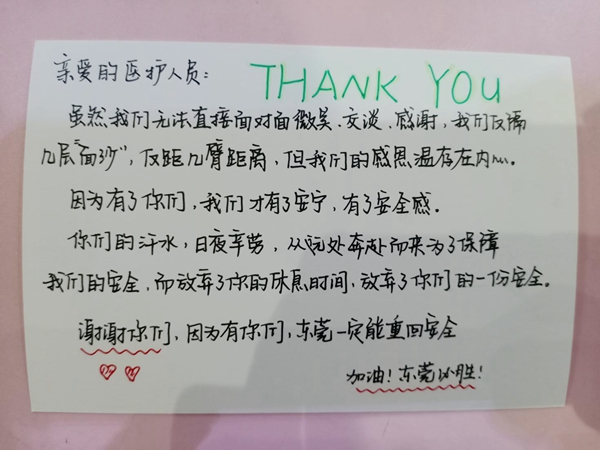 亲爱的医护人员：
THANK YOU
虽然我们无法直接面对面微笑、交谈、感谢，我们仅隔
几层“面纱”，仅距几臂距离，但我们的感恩温存在内心。
因为有了你们，我们才有了安宁，有了安全感。
你们的汗水，日夜辛劳，从远处奔赴而来为了保障
我们的安全，而放弃了你的休息时间，放弃了你们的一份安全。
谢谢你们，因为有你们，东莞一定能重回安全
加油！东莞必胜！